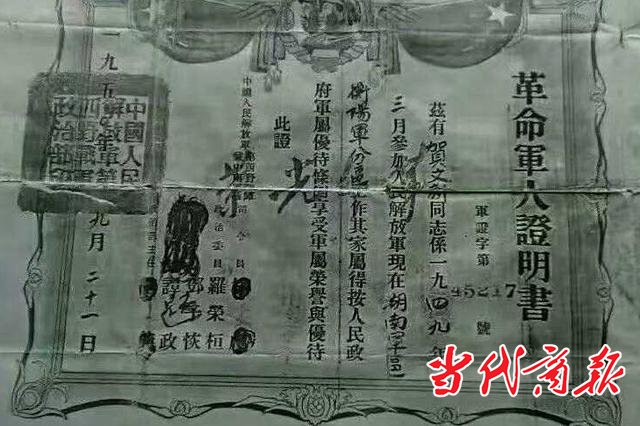 革命軍人證明書
軍證字第45247號
茲有賀文 同志係一九四九年
三月參加人民解放軍現在湖南
衡陽軍分區工作其家屬得按人民政
府軍屬優待條例享受軍屬榮譽與優待
此證
中國人民解放軍第四野戰軍
司令員
政治委員 羅榮桓
鄧
譚政
一九五 年九月二十一日
中國人民
解放軍第
四野戰軍
政治部印
当代商报